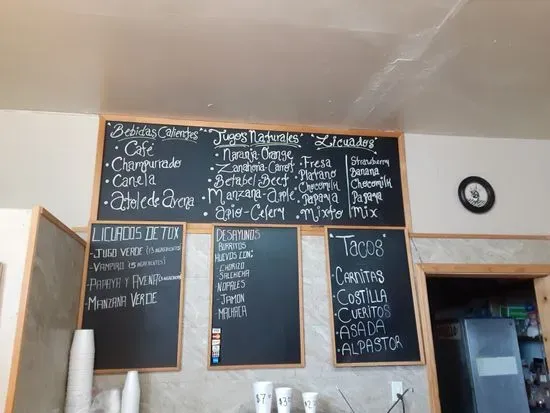 Bebidas Calientes
• Café
• Champurrado
• Canela
• Atole de Avena
Jugos Naturales
• Naranja-Orange
• Zanahoria-Carrot
• Betabel-Beet
• Manzana-Apple
• Apio-Celery
Licuados
• Fresa Strawberry
• Platano Banana
• Chocomilk Chocomilk
• Papaya Papaya
• Mixto Mix
LICUADOS DETOX
- JUGO VERDE (13 INGREDIENTES)
- VAMPIRO (5 INGREDIENTES)
- PAPAYA Y AVENA
- MANZANA VERDE
DESAYUNOS
BURRITOS
HUEVOS CON:
CHORIZO
SALCHICHA
NOPALES
JAMON
MACHACA
"TACOS"
-CARNITAS
-COSTILLA
-CUERITOS
-ASADA
-ALPASTOR
$7
$3
$2